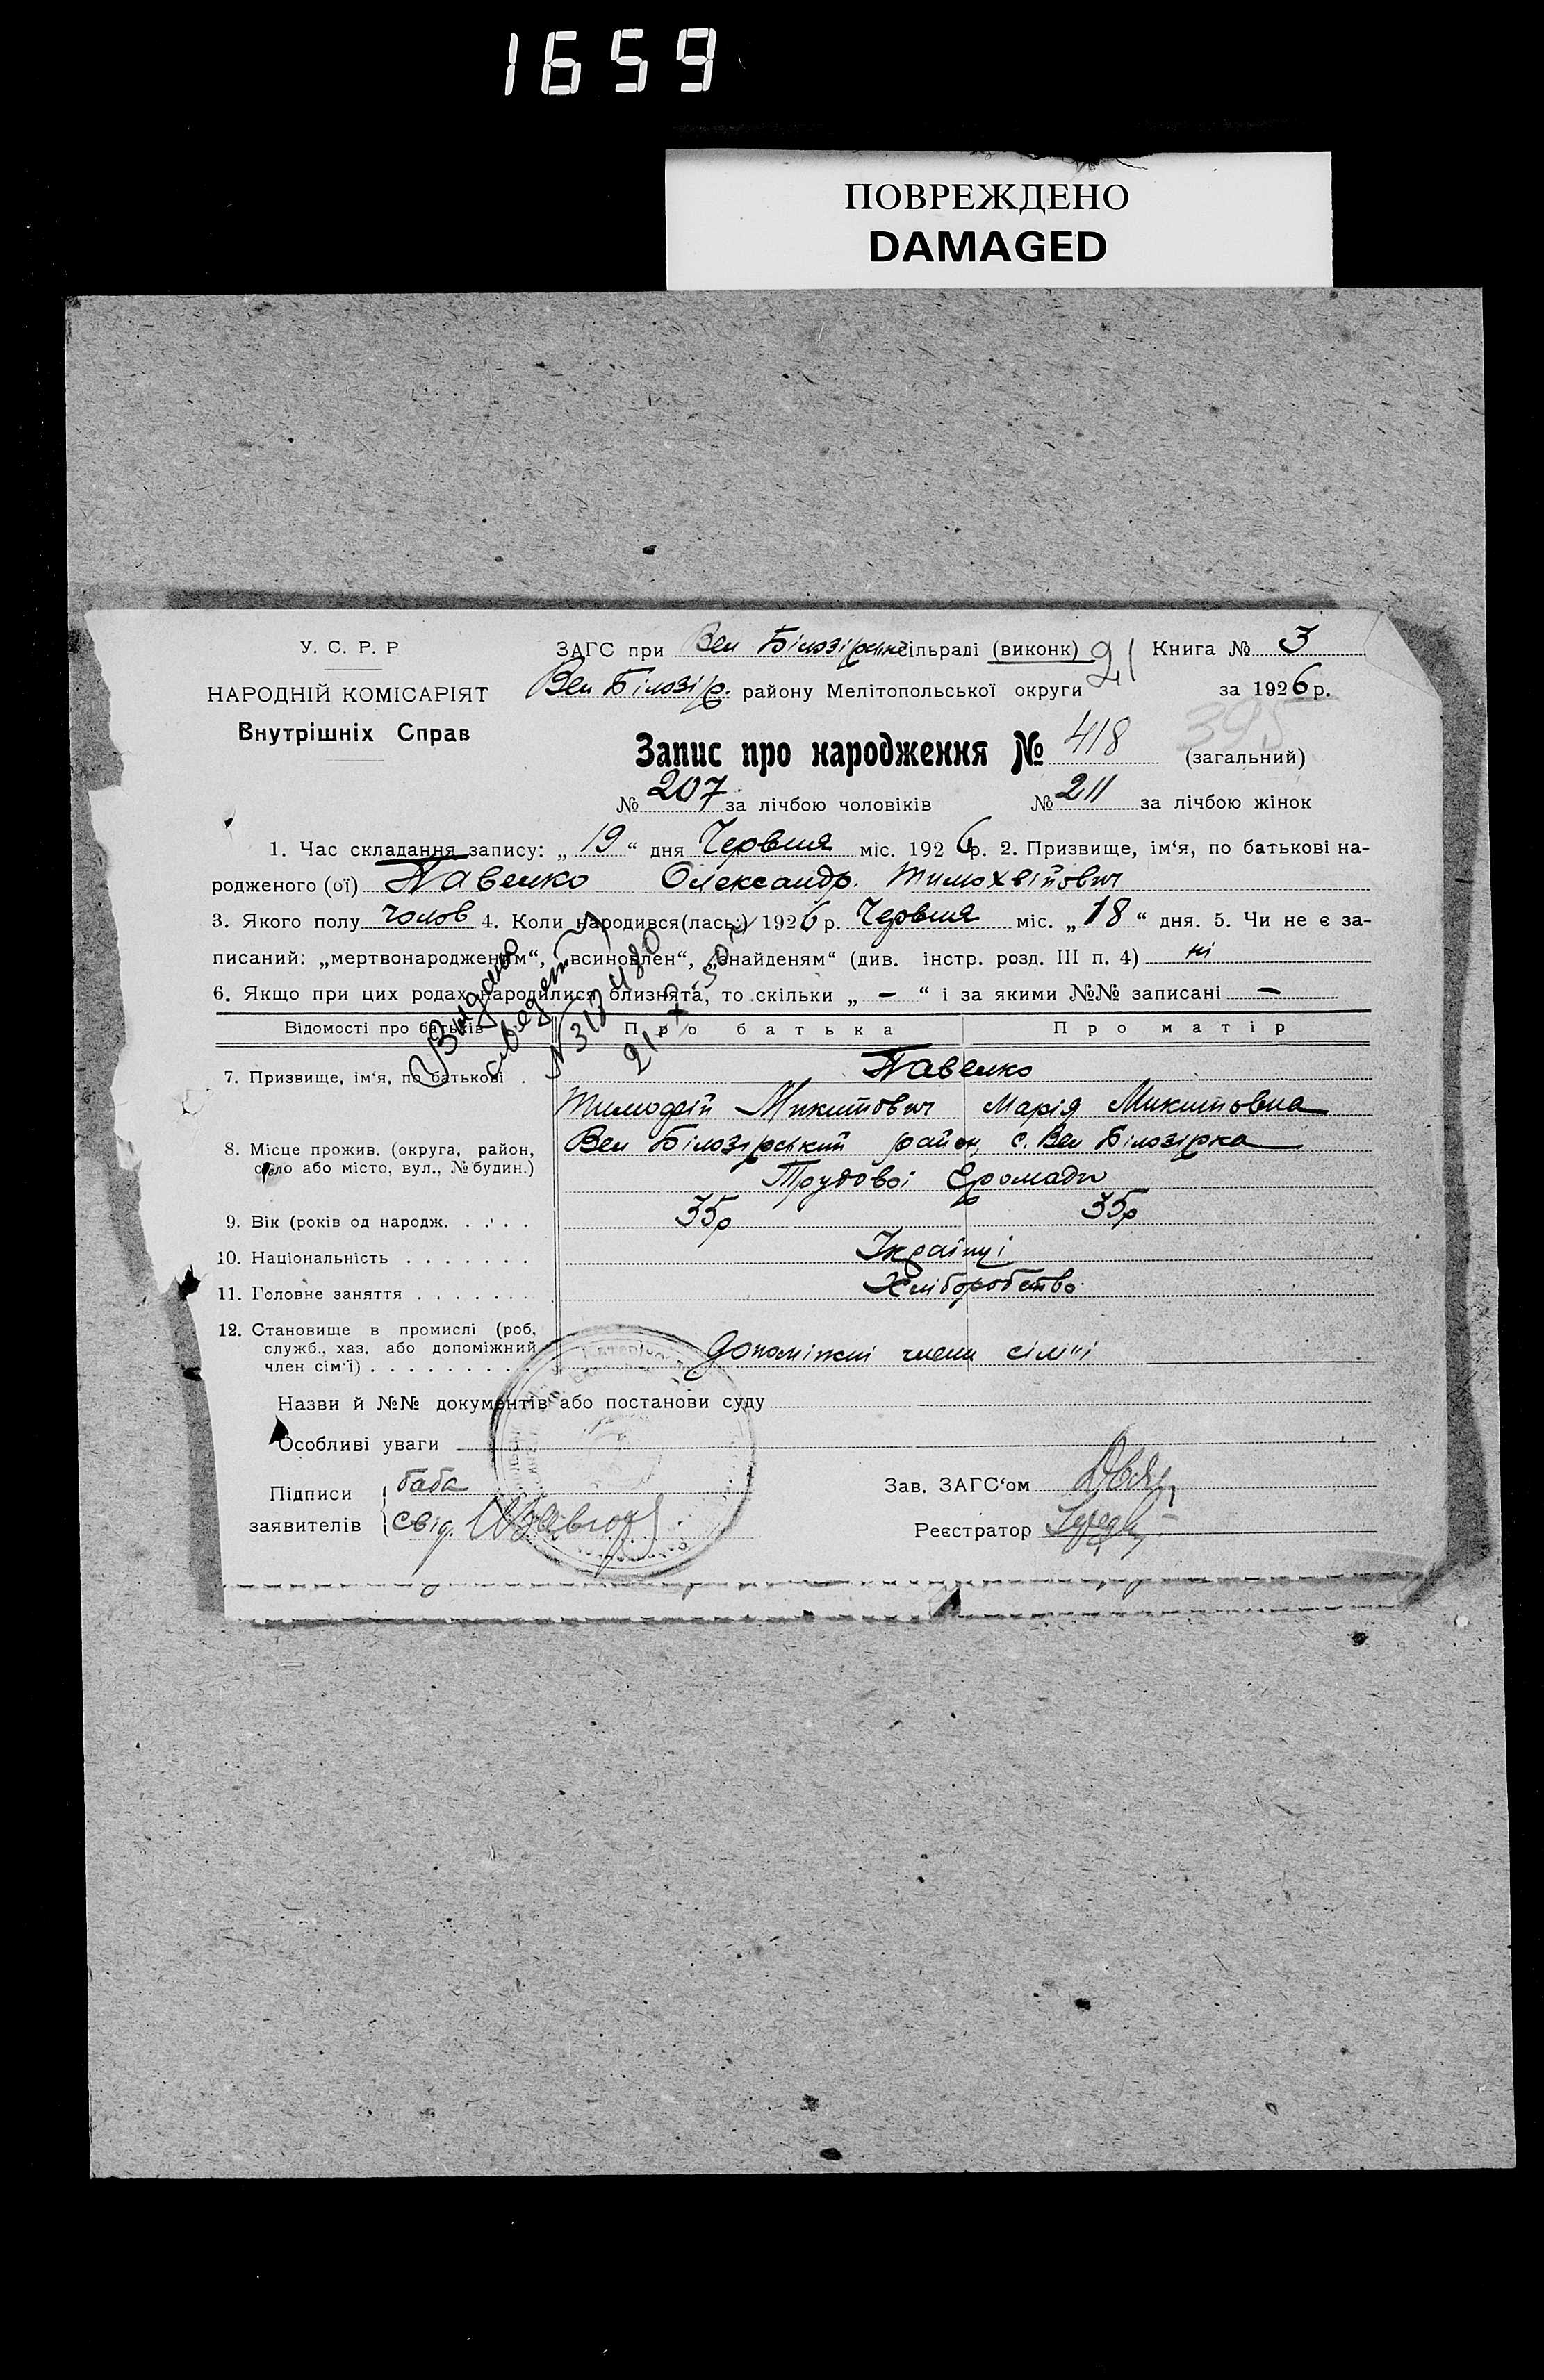 1659
ПОВРЕЖДЕНО
DAMAGED
У. С. Р. Р
ЗАГС при Вел Білозірськ сільраді (виконк) 21 Книга № 3
НАРОДНІЙ КОМІСАРІЯТ
Вел Білозір. району Мелітопольської округи за 1926 р.
Внутрішніх Справ
395
Запис про народження № 418 (загальний)
№ 207 за лічбою чоловіків № 211 за лічбою жінок
1. Час складання запису: „ 19 “ дня Червня міс. 1926 р. 2. Призвище, ім‘я, по батькові на-
родженого (ої) Павелко Олександр. Тимохвійович
3. Якого полу чолов 4. Коли народився(лась:) 1926 р. Червня міс. „ 18 “ дня. 5. Чи не є за-
писаний: „мертвонародженям“, „всиновлен“, „знайденям“ (див. інстр. розд. III п. 4) ні
6. Якщо при цих родах народилися близнята, то скільки „ — “ і за якими №№ записані —
Видано
свідет
N 318480
Відомості про батьків Про батька Про матір
7. Призвище, ім‘я, по батькові . Павелко
Тимофей Микитович Марія Микитовна
8. Місце прожив. (округа, район, Вел Білозірський район, с. Вел Білозірка
село або місто, вул., № будин.) Трудової Громади
9. Вік (років од народж. . . . . 35р 35р
10. Національність . . . . . . . Українці
11. Головне заняття . . . . . . . Хліборобство
12. Становище в промислі (роб,
служб., хаз. або допоміжний допоміжні члени сім'ї
член сім‘ї) . . . . . . . .
Назви й №№ документів або постанови суду
Особливі уваги
Підписи баба Зав. ЗАГС‘ом
заявителів свід. Реєстратор